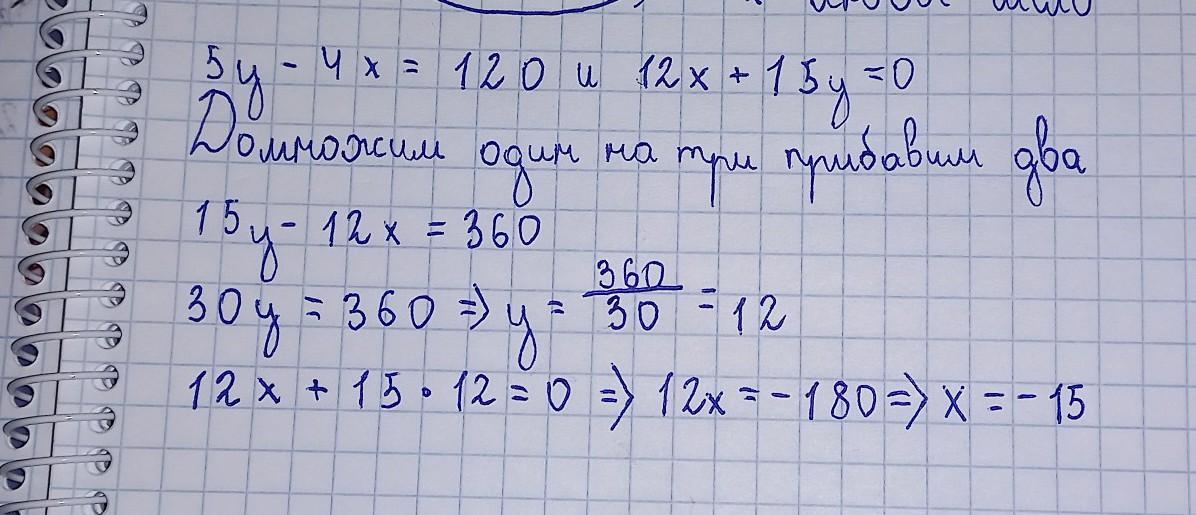 5y - 4x = 120 и 12x + 15y = 0
Домножим один на три прибавим два
15y - 12x = 360
30y = 360 => y = 360/30 = 12
12x + 15 · 12 = 0 => 12x = -180 => x = -15